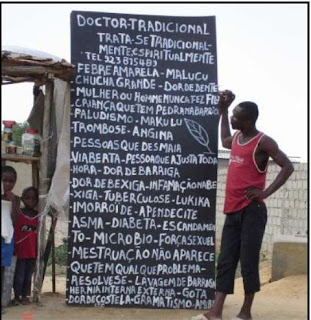 DOCTOR-TRADICIONAL
TRATA-SE TRADICIONAL-
MENTE: ESPIRITUALMENTE
TEL 923875489
FEBRE AMARELA-MALUCU
CHUCHA GRANDE-DOR DE DENTE
MULHER OU HOMEM NUNCA FEZ FILH
CRIANÇA QUE TEM PEDRA NA BARRIG
PALUDISMO-MAKULU
TROMBOSE-ANGINA
PESSOAS QUE DESMAIA
VIABEATA-PESSOA QUE AJUSTA TODA
HORA-DOR DE BARRIGA
DOR DE BEXIGA-INFAMAÇÃO NA BE
XIGA-TUBERCULOSE-LUKIKA
IMORROIDE-APENDECITE
ASMA-DIABETA-ESCANDAMEN
TO-MICROBIO-FORÇA SEXUAL
MESTRUAÇÃO NÃO APARECE
QUEM TEM QUALQUE PROBLEMA-
RESOLVE SE-LAVAGEM DE BARRIGA
HERNIA INTERNA EXTERNA-GOTA
DOR DE COSTELA-GRAMATISMO-